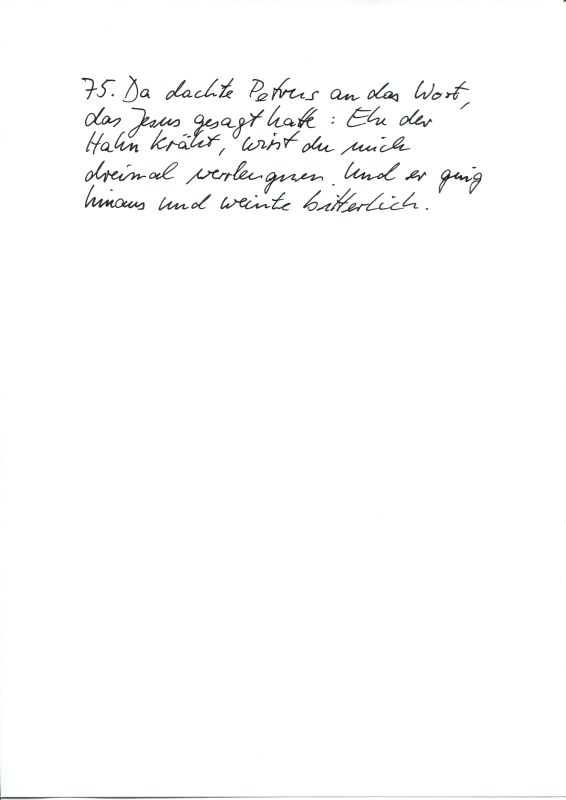 75. Da dachte Petrus an das Wort,
das Jesus gesagt hatte: Ehe der
Hahn kräht, wirst du mich
dreimal verleugnen. Und er ging
hinaus und weinte bitterlich.